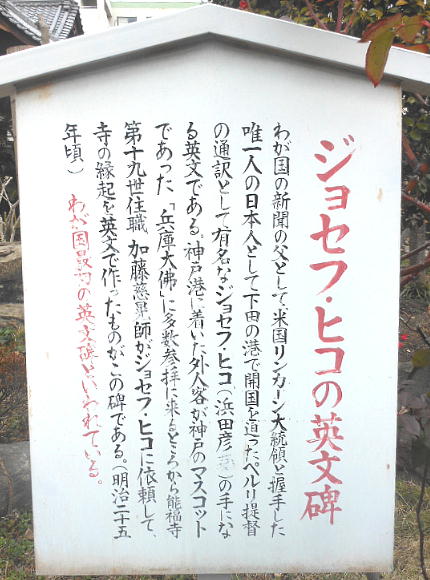 ジョセフ・ヒコの英文碑
わが国の新聞の父として、米国リンカーン大統領と握手した
唯一人の日本人として下田の港で開国を迫ったペルリ提督
の通訳として有名なジョセフ・ヒコ(浜田彦)の手にな
る英文である。神戸港に着いた外人客が神戸のマスコット
であった「兵庫大佛」に多数参拝に来るところから能福寺
第十九世住職 加藤慈晃師がジョセフ・ヒコに依頼して、
寺の縁起を英文で作ったものがこの碑である。(明治二十五
年頃) わが国最初の英文碑といわれている。